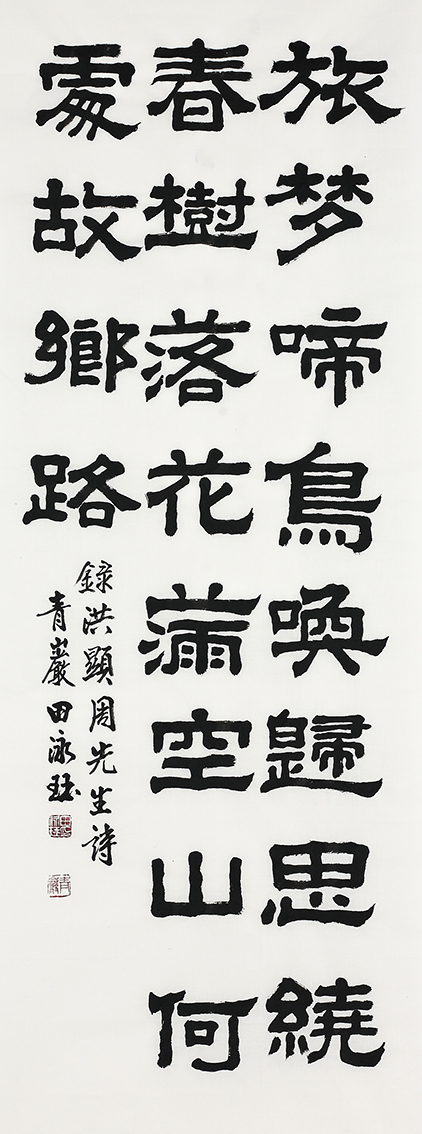 旅梦啼鳥喚歸思繞
春樹落花滿空山何
處故鄉路
錄洪顯周先生詩
青巖田泳珏